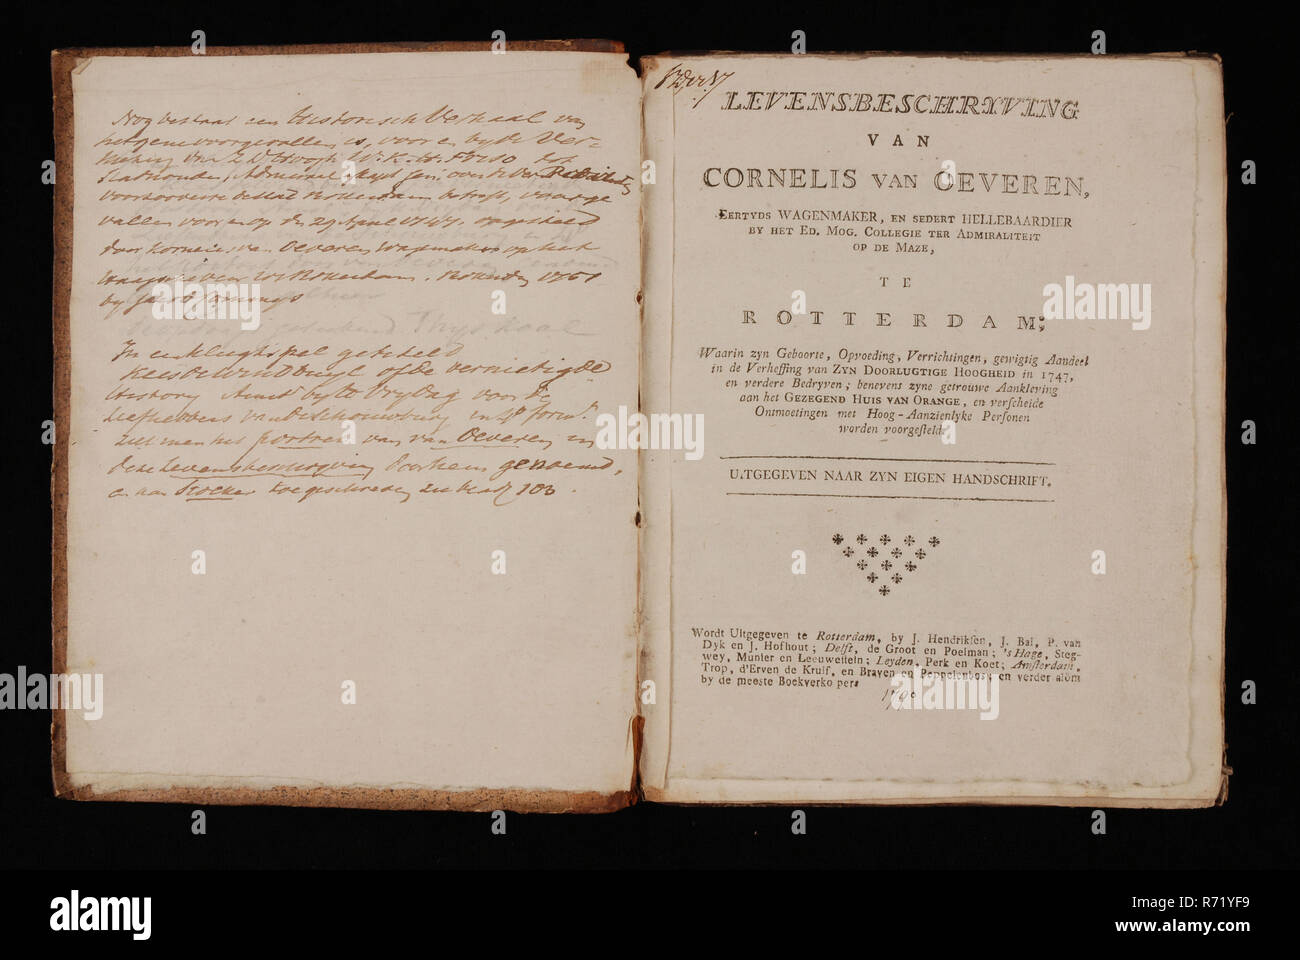 Nog bestaat een Historisch Verhaal van
hetgeen voorgevallen is, voor en by de Ver-
van Z. D. Hoogh. W. K. H. Friso tot
Stadhouder, Admiraal
Rotterdam
vallen voor en op den 29 April 1747. opgesteld
door Kornelis van Oeveren Wagemaker op het
te Rotterdam. Rotterdam 1751
by
Thyssaal
In een klugtspel getiteld
Kees de Windbuyl of de vernietigde
History Amst by Vrydag voor de
Liefhebbers van de Schouwburg in 4° form.
ziet men het portret van van Oeveren in
deze Levensbeschryving Doorheen genoemd,
en aan toegeschreven zie bladz 103.
LEVENSBESCHRYVING
VAN
CORNELIS VAN OEVEREN,
EERTYDS WAGENMAKER, EN SEDERT HELLEBAARDIER
BY HET ED. MOG. COLLEGIE TER ADMIRALITEIT
OP DE MAZE,
TE
ROTTERDAM;
Waarin zyn Geboorte, Opvoeding, Verrichtingen, gewigtig Aandeel
in de Verheffing van ZYN DOORLUGTIGE HOOGHEID in 1747,
en verdere Bedryven; benevens zyne getrouwe Aankleving
aan het GEZEGEND HUIS VAN ORANGE, en verscheide
Ontmoetingen met Hoog-Aanzienlyke Persoonen
worden voorgesteld.
UITGEGEVEN NAAR ZYN EIGEN HANDSCHRIFT.
Wordt Uitgegeven te Rotterdam, by J. Hendriksen, J. Bal, P. van
Dyk en J. Hofhout; Delft, de Groot en Poelman; 's Hage, Steg-
wey, Munier en Leeuwestein; Leyden, Perk en Koet; Amsterdam,
Trop, d'Erven de Kruif, en Braven en Peppelenbos; en verder alöm
by de meeste Boekverkopers
1790
alamy
Image ID: R71YF9
www.alamy.com